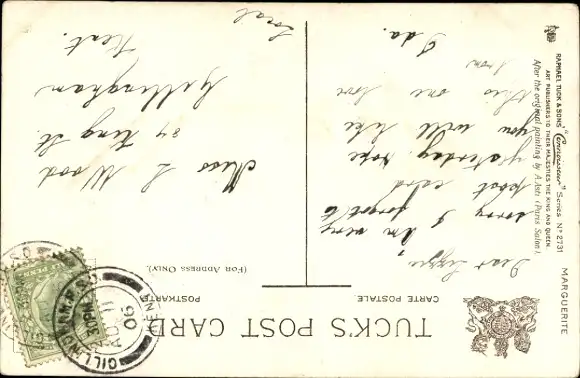 TUCK'S POST CARD
CARTE POSTALE
POSTKARTE
(FOR ADDRESS ONLY).
Dear Lizzie,
I'm very
sorry I forgot to
post card
yesterday, hope
you will like
this one love
from
Ida.
Miss L Wood
84 King St.
Gillingham
Kent.
Local
GILLINGHAM
AU 11
06
KENT
RAPHAEL TUCK & SONS' "Connoisseur" SERIES No 2731
ART PUBLISHERS TO THEIR MAJESTIES THE KING AND QUEEN.
After the original painting by A. Asti (Paris Salon).
MARGUERITE